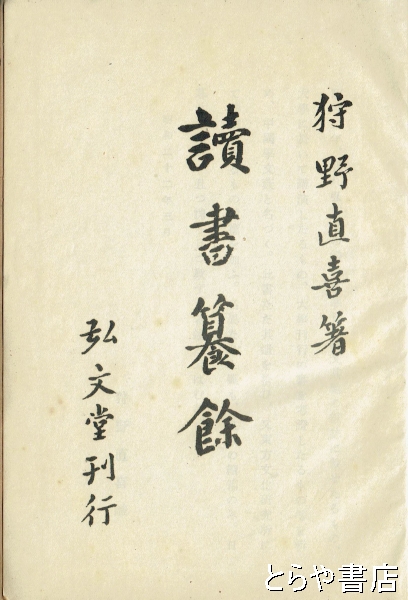 狩野直喜箸
讀書籑餘
弘文堂刊行
とらや書店